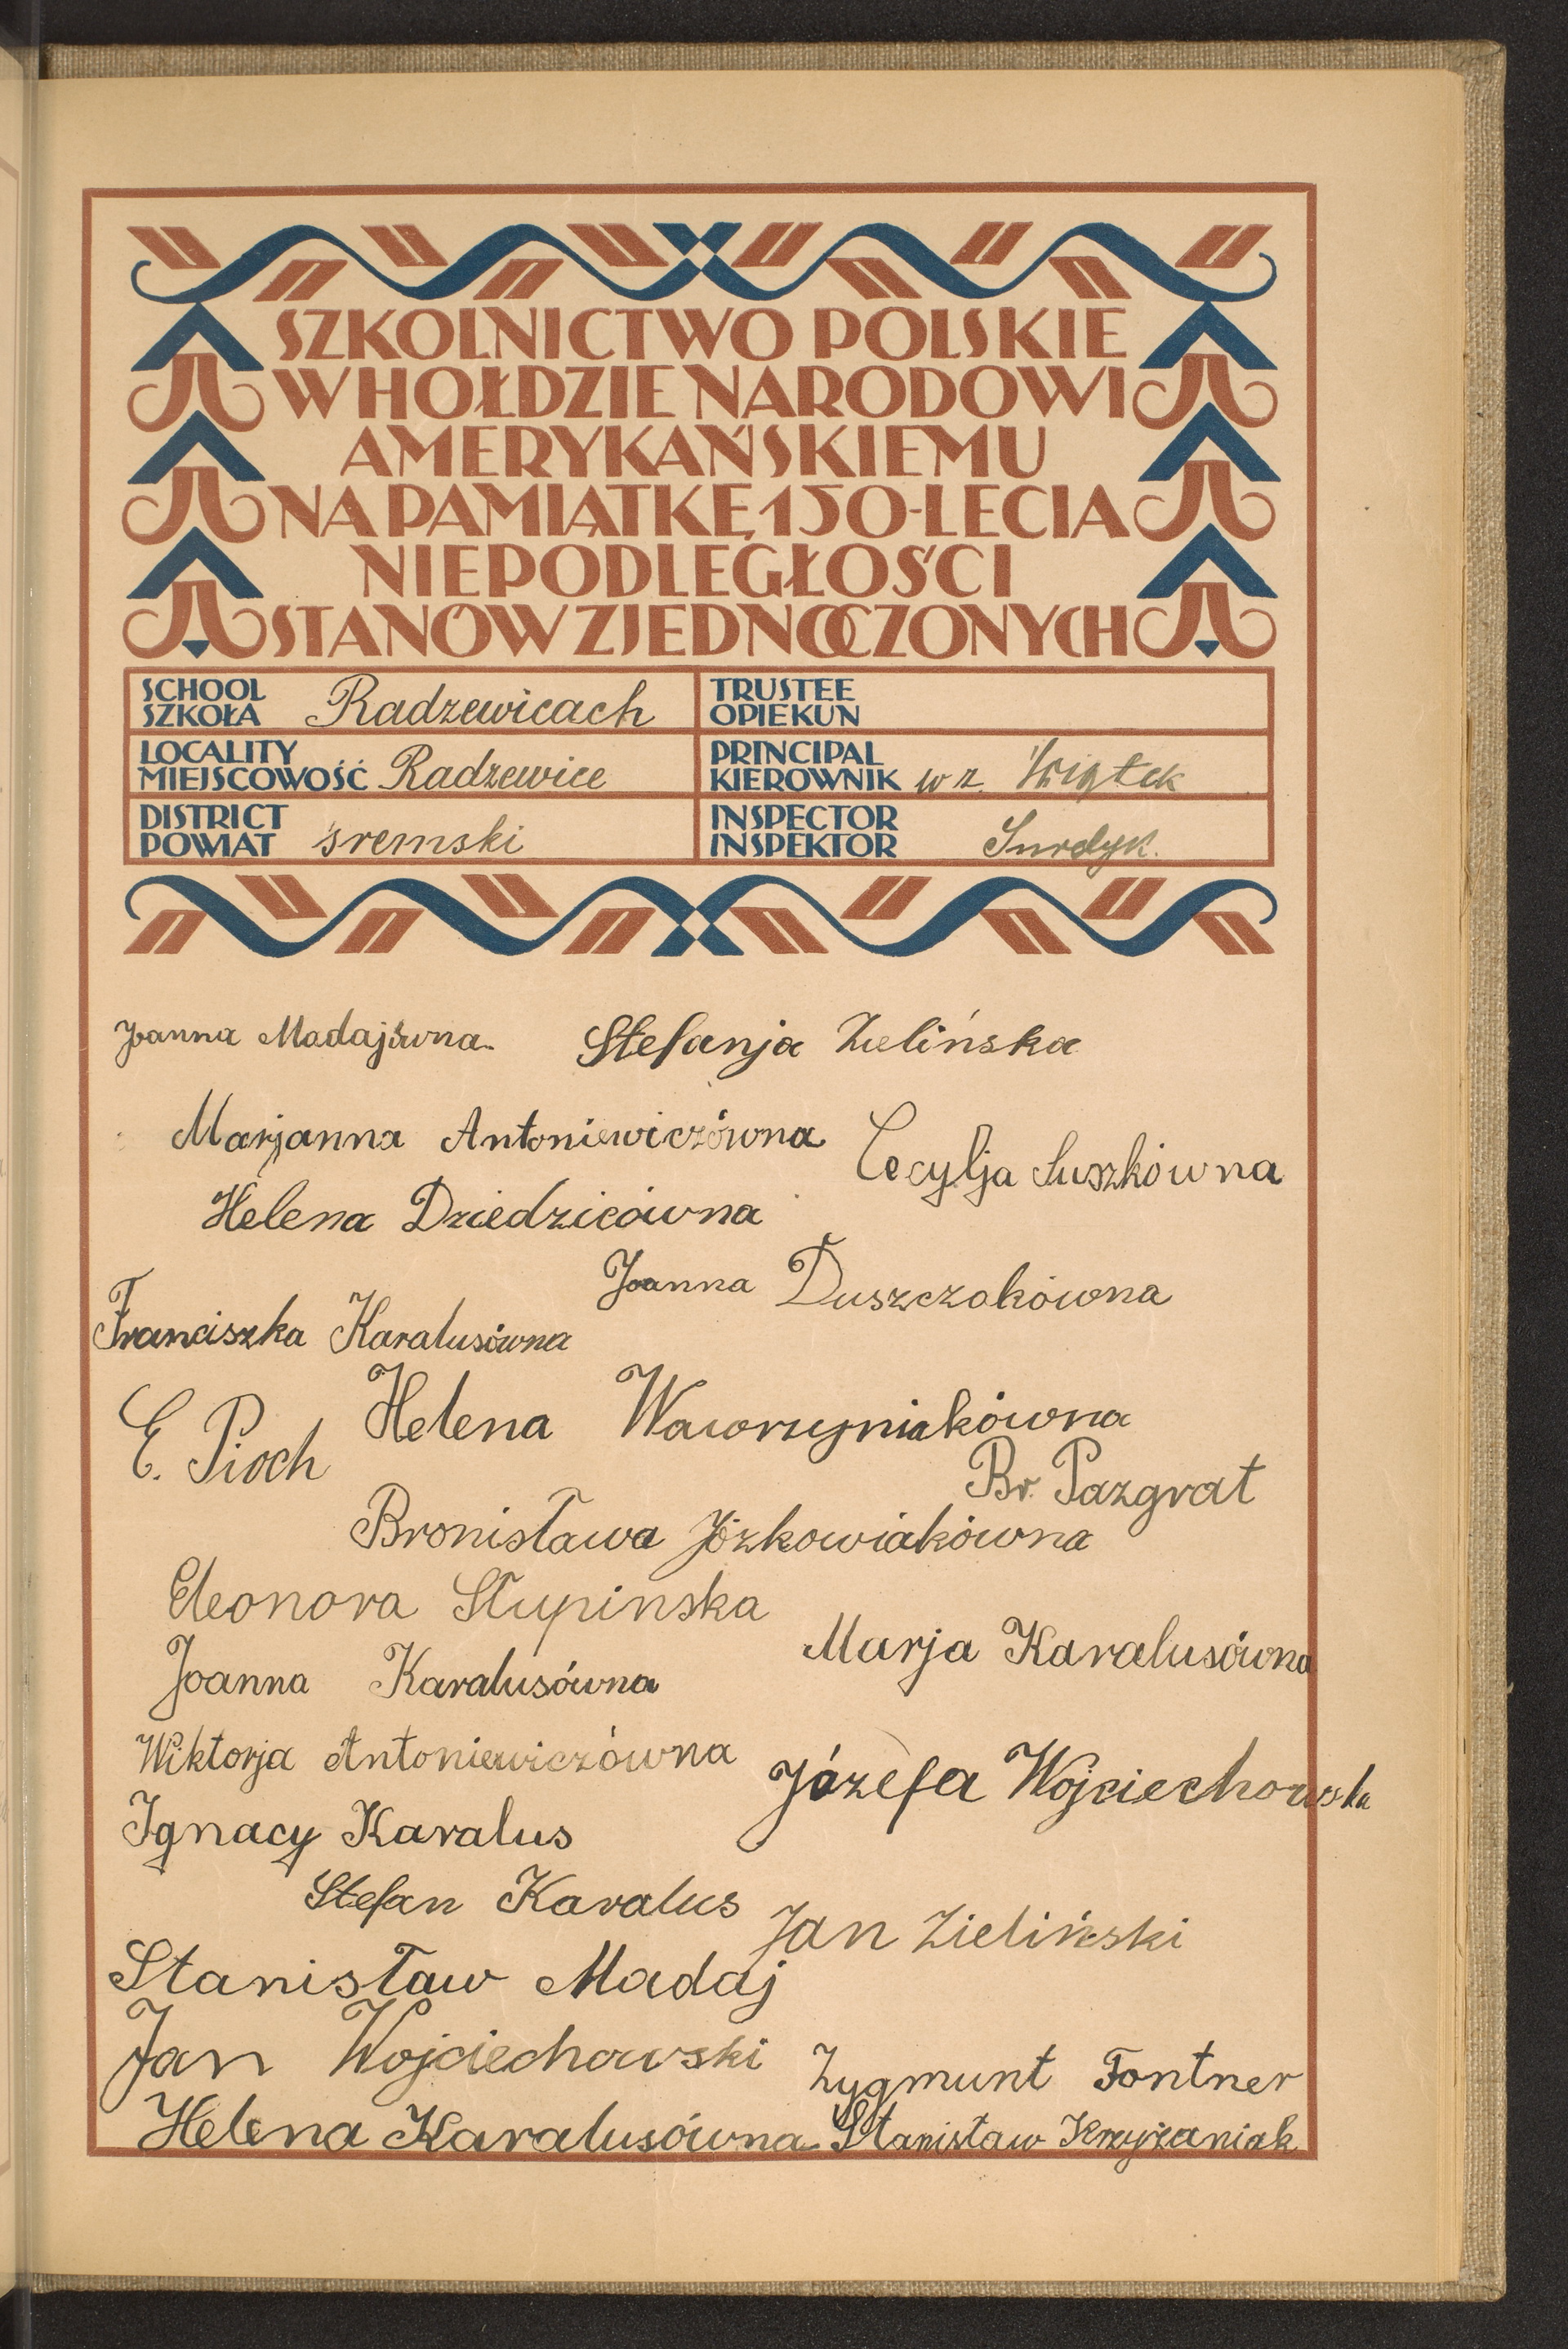 SZKOLNICTWO POLSKIE
W HOŁDZIE NARODOWI
AMERYKAŃSKIEMU
NA PAMIĄTKĘ 150-LECIA
NIEPODLEGŁOŚCI
STANÓW ZJEDNOCZONYCH
SCHOOL
SZKOŁA Radzewicach
TRUSTEE
OPIEKUN
LOCALITY
MIEJSCOWOŚĆ Radzewice
PRINCIPAL
KIEROWNIK w z. Wiątek
DISTRICT
POWIAT śremski
INSPECTOR
INSPEKTOR Surdyk.
Joanna Madajówna
Stefanja Zielińska
Marjanna Antoniewiczówna
Cecylja Suszkówna
Helena Dziedzicówna
Joanna Duszczakówna
Franciszka Karalusówna
E. Pioch
Helena Wawrzyniakówna
Br. Pazgrat
Bronisława Józkowiakówna
Eleonora Słupinska
Marja Karalusówna
Joanna Karalusówna
Wiktorja Antoniewiczówna
Józefa Wojciechowska
Ignacy Karalus
Stefan Karalus
Jan Zieliński
Stanisław Madaj
Jan Wojciechowski
Zygmunt Fontner
Helena Karalusówna
Stanisław Krzyżaniak